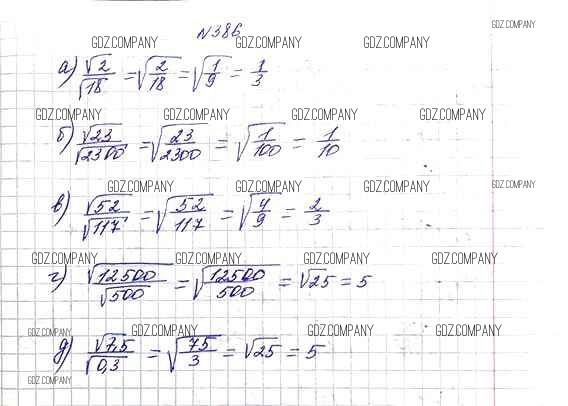 №386
GDZ.COMPANY
GDZ.COMPANY GDZ.COMPANY GDZ.COMPANY
а) √2/√18 = √(2/18) = √(1/9) = 1/3
GDZ.COMPANY GDZ.COMPANY GDZ.COMPANY GDZ.COMPANY
б) √23/√2300 = √(23/2300) = √(1/100) = 1/10
GDZ.COMPANY GDZ.COMPANY GDZ.COMPANY GDZ.COMPANY
в) √52/√117 = √(52/117) = √(4/9) = 2/3
GDZ.COMPANY GDZ.COMPANY GDZ.COMPANY GDZ.COMPANY
г) √12500/√500 = √(12500/500) = √25 = 5
GDZ.COMPANY GDZ.COMPANY GDZ.COMPANY GDZ.COMPANY
д) √7,5/√0,3 = √(75/3) = √25 = 5
GDZ.COMPANY